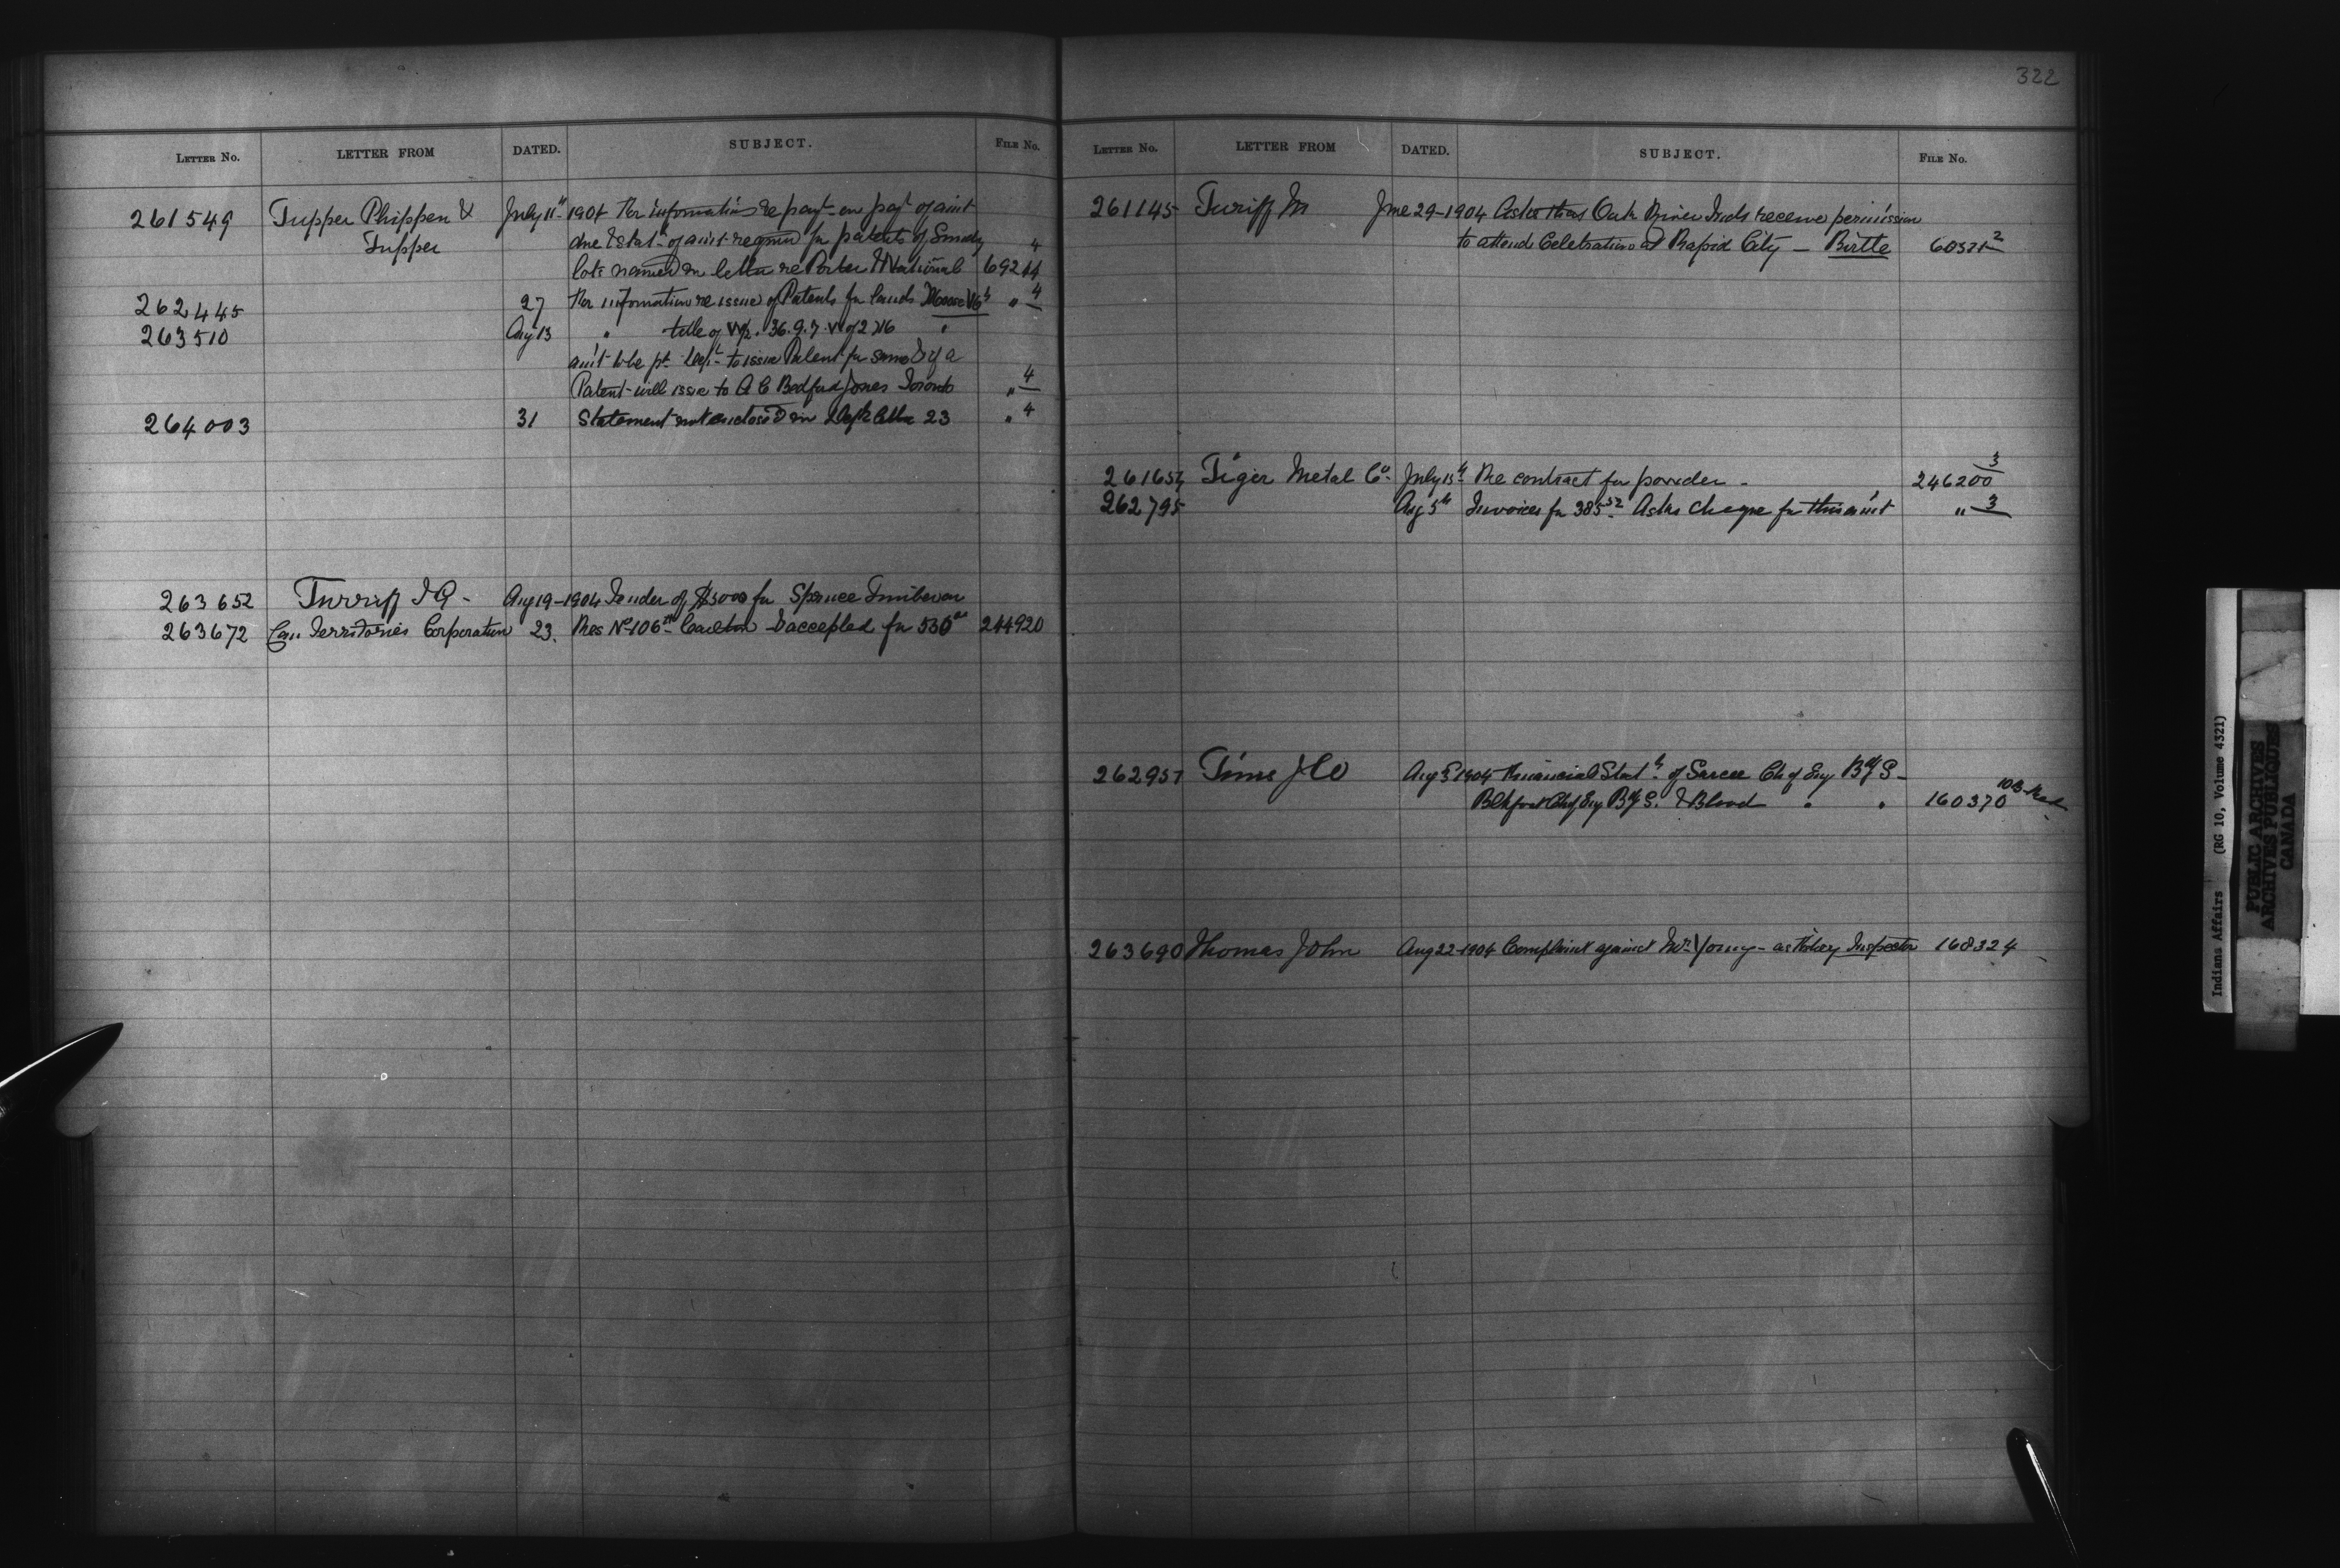 322
LETTER NO. LETTER FROM DATED. SUBJECT. FILE No.
261549 Tupper Phippen & July 11th 1904 For information re payt on payt of amt
Tupper due & stat of amt required for patents of Sundry
lots named in letter re Porter & National 69244 4
262445 27 For information re issue of Patents for lands Moose Mt " 4
263510 Aug 13 " title of W½. 36.9.7. W of 2 M "
amt to be pd Dept to issue Patent for same & if a
Patent will issue to A C Bedford Jones Toronto " 4
264003 31 Statement not enclosed in Dept's letter 23 " 4
263652 Turriff J G - Aug 19-1904 Tender of $5000 for Spruce Timber on
263672 Can Territories Corporation 23. Res No 106 Carlton & accepted for 530 244920
LETTER NO. LETTER FROM DATED. SUBJECT. FILE No.
261145 Turiff M June 29-1904 Asks that Oak River Inds receive permission
to attend Celebration at Rapid City - Birtle 60371 2
261654 Tiger Metal Co. July 15th Re contract for powder - 246200 3
262795 Aug 5th Invoices for 385 52 Asks cheque for this amt " 3
262957 Tims J W Aug 5 1904 Financial Stat of Sarcee Ch of Eng B S -
Blkfoot Ch of Eng B S. & Blood " " 160370 103
263690 Thomas John Aug 22-1904 Complaint against Mr Young - as Fishery Inspector 168324
Indians Affairs (RG 10, Volume 4321)
PUBLIC ARCHIVES
ARCHIVES PUBLIQUES
CANADA